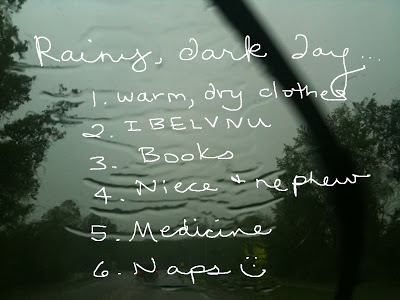 Rainy, dark day...
1. warm, dry clothes
2. IBELVNU
3. Books
4. Niece + nephew
5. Medicine
6. Naps ☺